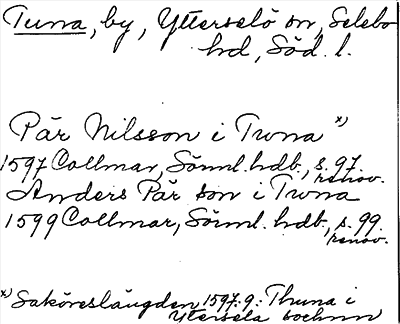 Tuna, by, Ytterselö sn, Selebo
hd, Söd. l.
Pär Nilsson i Twna x)
1597 Collmar, Sörml. hdb., s. 97.
renov.
Anders Pär son i Twna
1599 Collmar, Sörml. hdb., s. 99.
renov.
x) Saköreslängden 1597:9: Thuna i
Ytersela sochnn